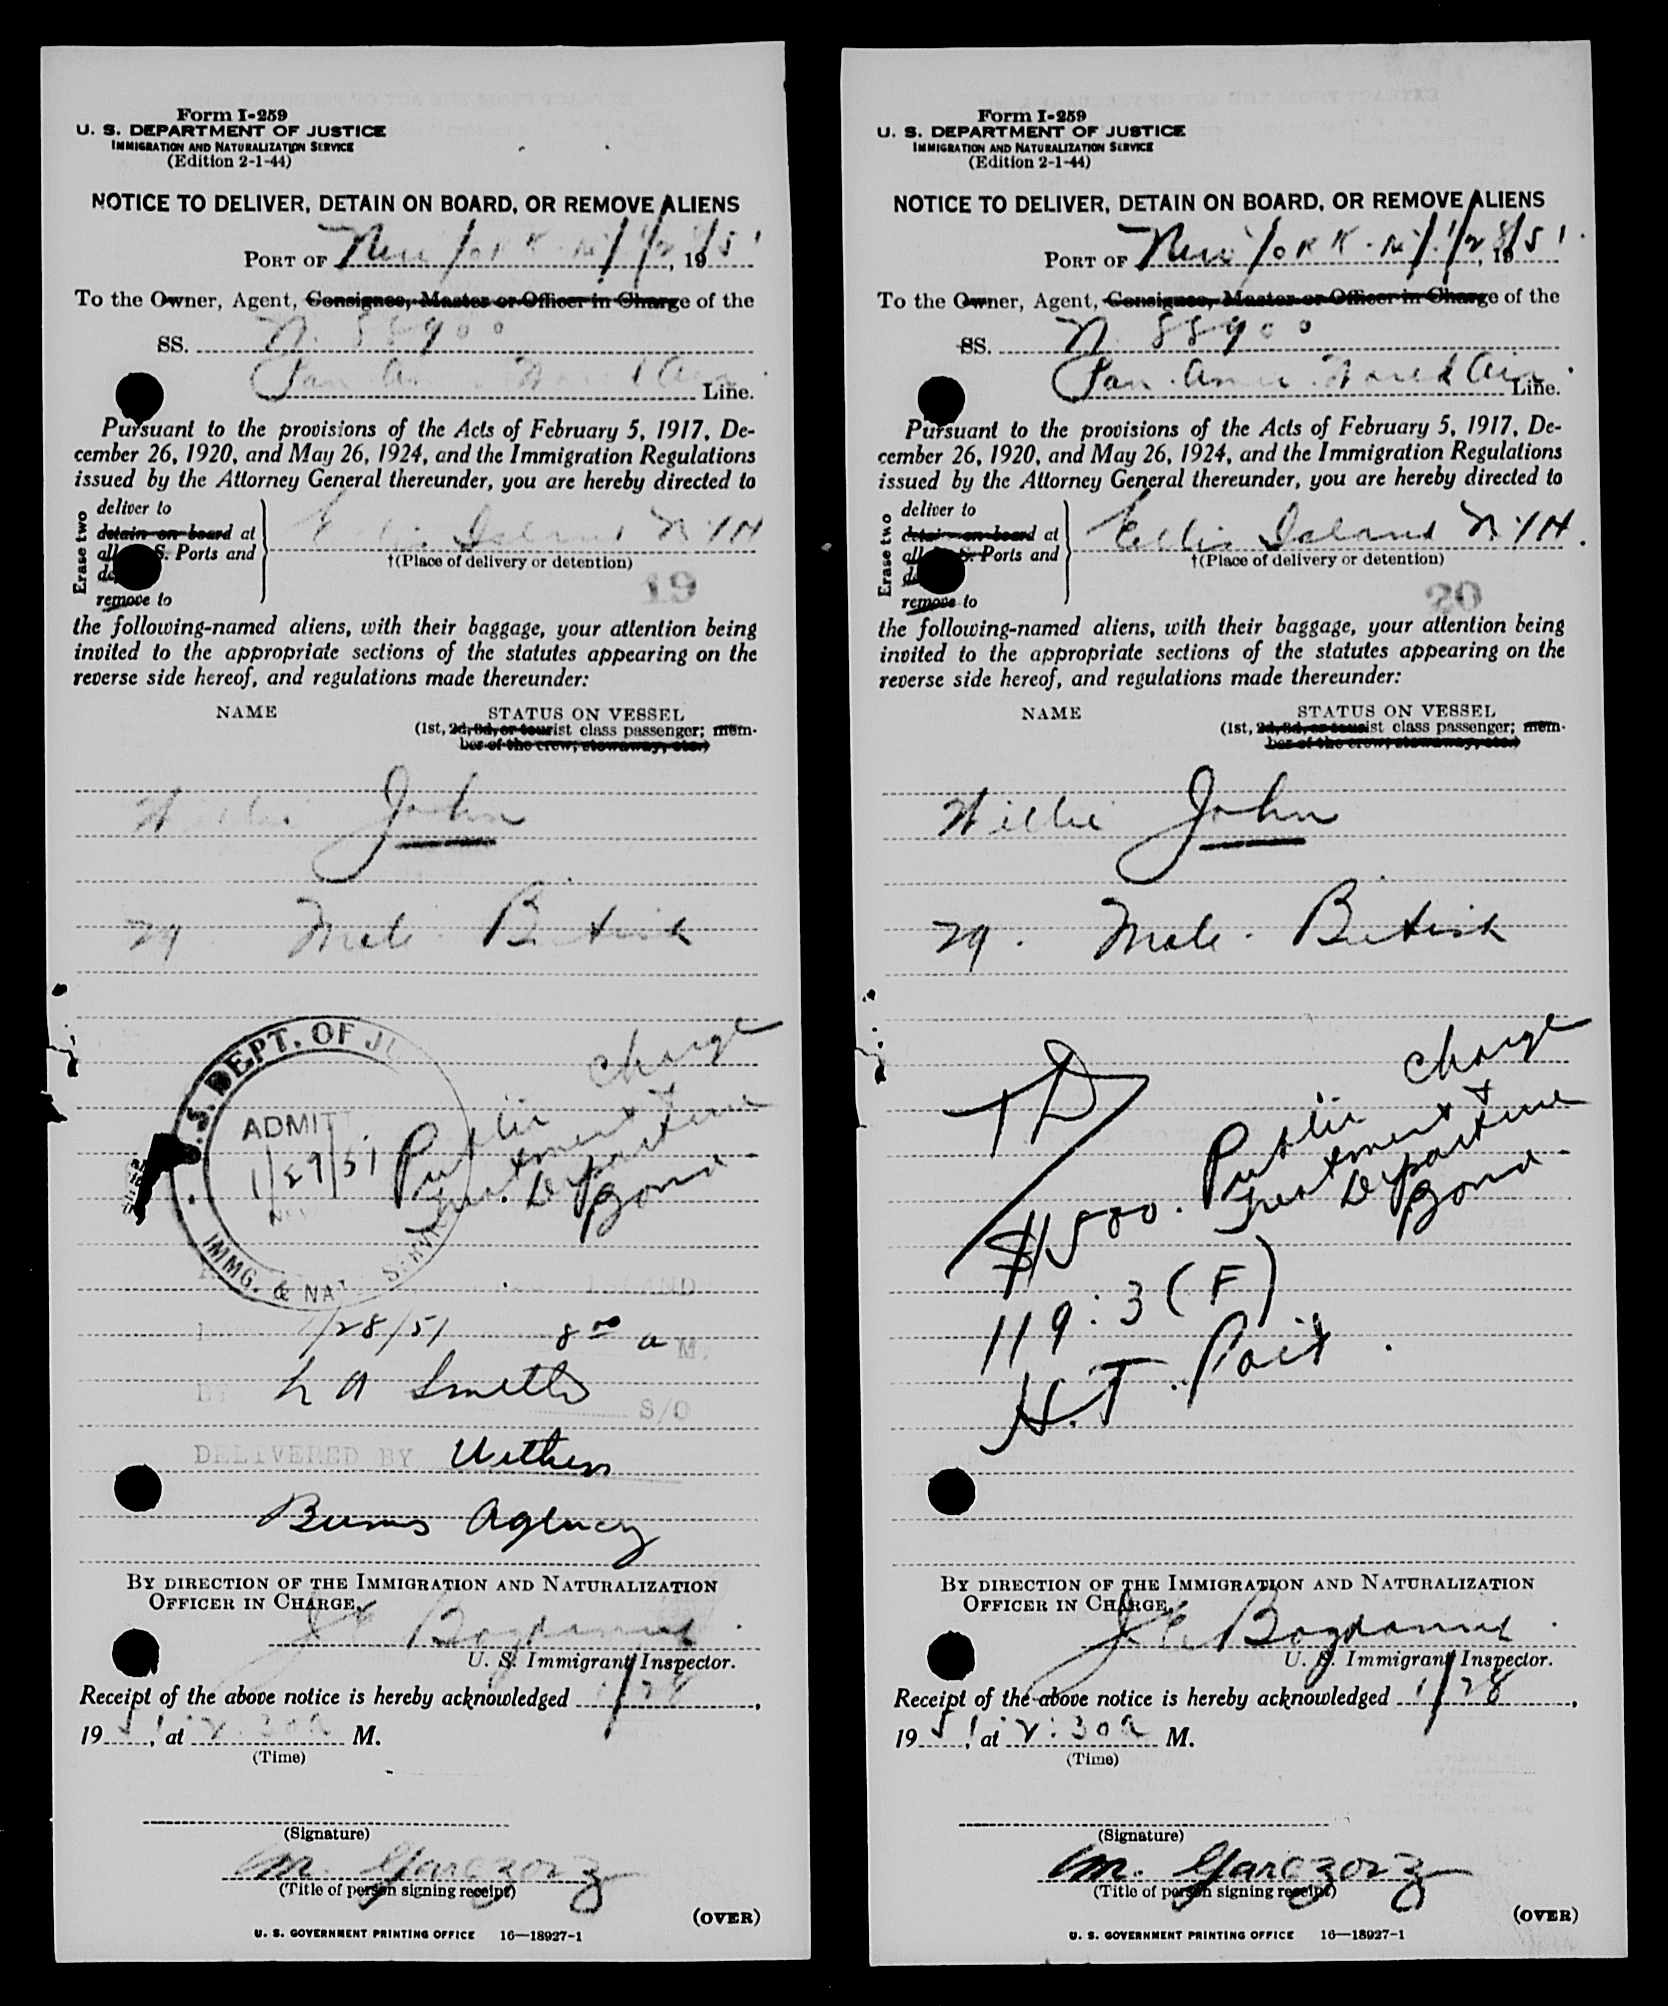 Form I-259
U. S. DEPARTMENT OF JUSTICE
IMMIGRATION AND NATURALIZATION SERVICE
(Edition 2-1-44)
NOTICE TO DELIVER, DETAIN ON BOARD, OR REMOVE ALIENS
PORT OF New York N.Y. 1/28, 1951
To the Owner, Agent, Consignee, Master or Officer in Charge of the
SS. N. 88900
Pan Amer World Air Line.
Pursuant to the provisions of the Acts of February 5, 1917, De-
cember 26, 1920, and May 26, 1924, and the Immigration Regulations
issued by the Attorney General thereunder, you are hereby directed to
Erase two
deliver to
detain on board at
all U. S. Ports and
remove to
Ellis Island NYH
†(Place of delivery or detention)
19
the following-named aliens, with their baggage, your attention being
invited to the appropriate sections of the statutes appearing on the
reverse side hereof, and regulations made thereunder:
NAME STATUS ON VESSEL
(1st, 2d, 3d, or tourist class passenger; mem-
ber of the crew, stowaway, etc.)
Willie John
29 Male British
U.S. DEPT. OF JU
ADMITT
1/29/51
IMMG. & NAT. SERV
Public Charge
Treatment
Departure
Bond
1/28/51 8 00 a M.
Smith
S/O
DELIVERED BY
Burns Agency
BY DIRECTION OF THE IMMIGRATION AND NATURALIZATION
OFFICER IN CHARGE,
U. S. Immigrant Inspector.
Receipt of the above notice is hereby acknowledged 1/28,
1951, at 2:30a M.
(Time)
(Signature)
M. Garczorz
(Title of person signing receipt)
(OVER)
U. S. GOVERNMENT PRINTING OFFICE 16—18927-1
Form I-259
U. S. DEPARTMENT OF JUSTICE
IMMIGRATION AND NATURALIZATION SERVICE
(Edition 2-1-44)
NOTICE TO DELIVER, DETAIN ON BOARD, OR REMOVE ALIENS
PORT OF New York N.Y. 1/28, 1951
To the Owner, Agent, Consignee, Master or Officer in Charge of the
SS. N. 88900
Pan Amer. World Air Line.
Pursuant to the provisions of the Acts of February 5, 1917, De-
cember 26, 1920, and May 26, 1924, and the Immigration Regulations
issued by the Attorney General thereunder, you are hereby directed to
Erase two
deliver to
detain on board at
all U. S. Ports and
remove to
Ellis Island NYH.
†(Place of delivery or detention)
20
the following-named aliens, with their baggage, your attention being
invited to the appropriate sections of the statutes appearing on the
reverse side hereof, and regulations made thereunder:
NAME STATUS ON VESSEL
(1st, 2d, 3d, or tourist class passenger; mem-
ber of the crew, stowaway, etc.)
Willie John
29. Male. British
TD
$500. Public Charge
Treatment
Departure
Bond
119:3(F)
BY DIRECTION OF THE IMMIGRATION AND NATURALIZATION
OFFICER IN CHARGE,
U. S. Immigrant Inspector.
Receipt of the above notice is hereby acknowledged 1/28,
1951, at 2:30a M.
(Time)
(Signature)
M. Garczorz
(Title of person signing receipt)
(OVER)
U. S. GOVERNMENT PRINTING OFFICE 16—18927-1